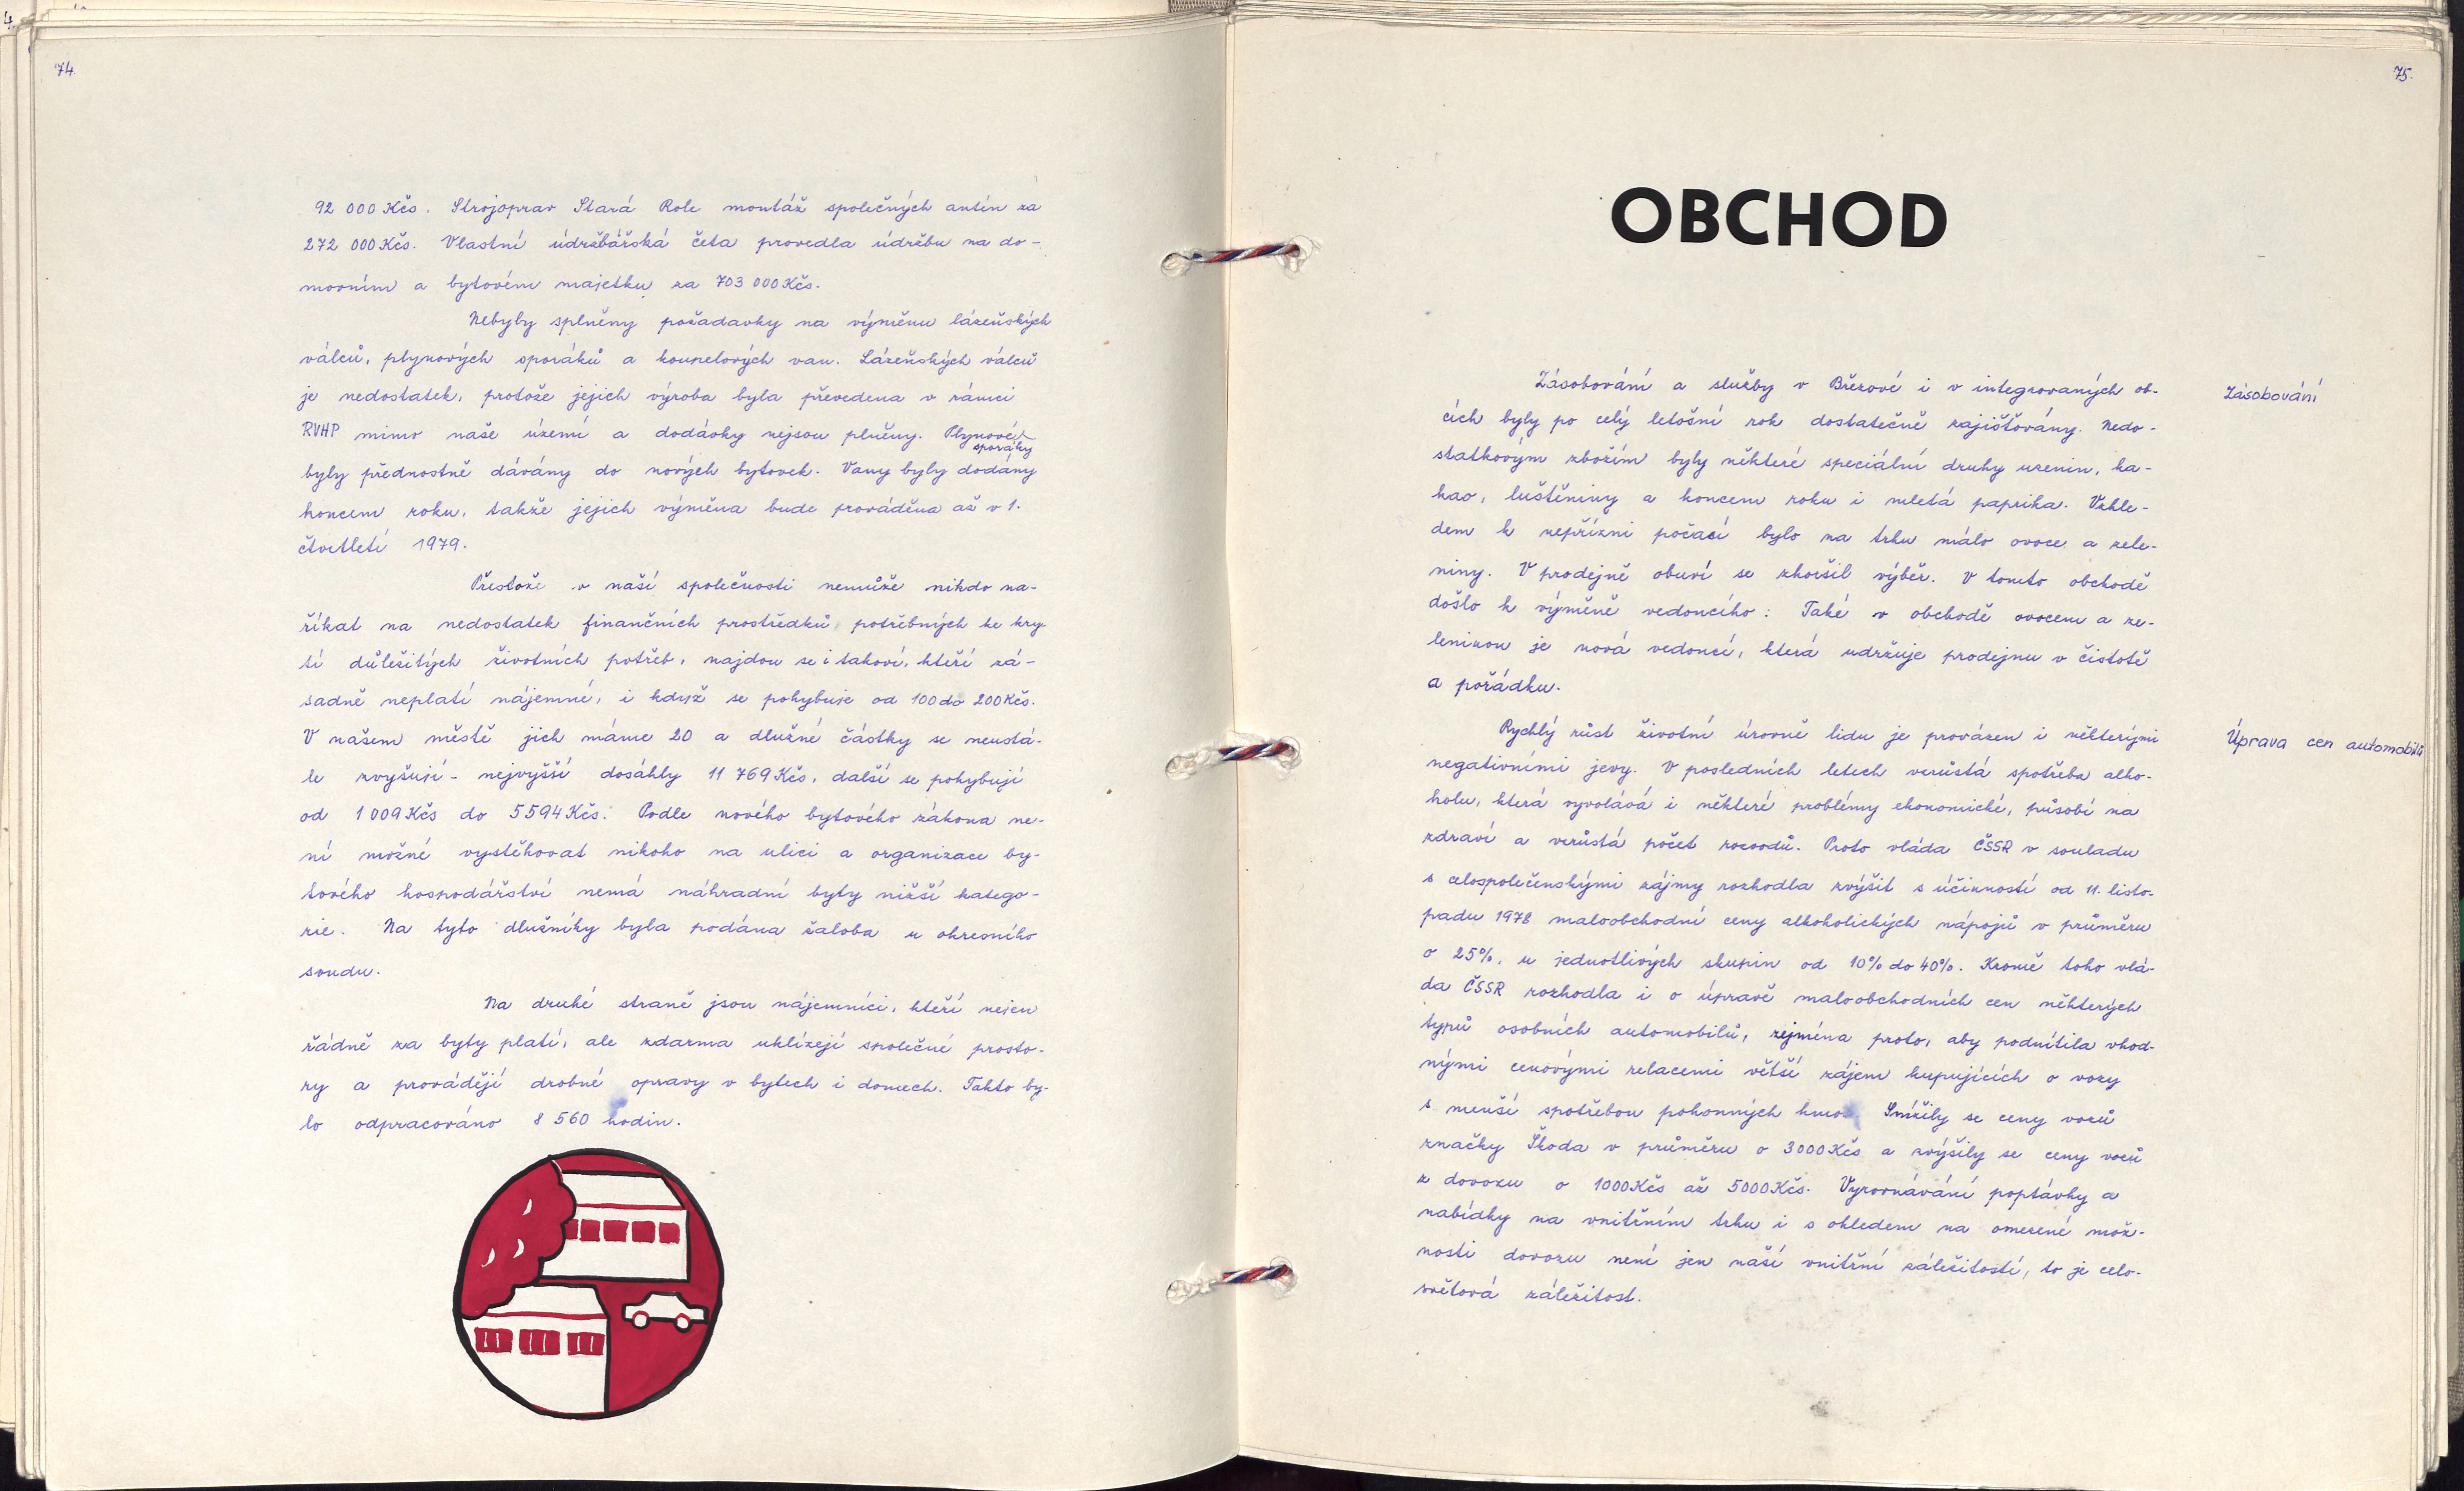 74.
92 000 Kčs. Strojoprav Stará Role montáž společných antén za
272 000 Kčs. Vlastní údržbářská četa provedla údržbu na do-
movním a bytovém majetku za 703 000 Kčs.
Nebyly splněny požadavky na výměnu lázeňských
válců, plynových sporáků a koupelových van. Lázeňských válců
je nedostatek, protože jejich výroba byla převedena v rámci
RVHP mimo naše území a dodávky nejsou plněny. Plynové
sporáky
byly přednostně dávány do nových bytovek. Vany byly dodány
koncem roku, takže jejich výměna bude prováděna až v 1.
čtvrtletí 1979.
Přestože v naší společnosti nemůže nikdo na-
říkat na nedostatek finančních prostředků potřebných ke kry-
tí důležitých životních potřeb, najdou se i takoví, kteří zá-
sadně neplatí nájemné, i když se pohybuje od 100 do 200 Kčs.
V našem městě jich máme 20 a dlužné částky se neustá-
le zvyšují - nejvyšší dosáhly 11 769 Kčs, další se pohybují
od 1 009 Kčs do 5 594 Kčs. Podle nového bytového zákona ne-
ní možné vystěhovat nikoho na ulici a organizace by-
tového hospodářství nemá náhradní byty nižší katego-
rie. Na tyto dlužníky byla podána žaloba u okresního
soudu.
Na druhé straně jsou nájemníci, kteří nejen
řádně za byty platí, ale zdarma uklízejí společné prosto-
ry a provádějí drobné opravy v bytech i domech. Takto by-
lo odpracováno 8 560 hodin.
75.
OBCHOD
Zásobování a služby v Březové i v integrovaných ob-
Zásobování
cích byly po celý letošní rok dostatečně zajišťovány. Nedo-
statkovým zbožím byly některé speciální druhy uzenin, ka-
kao, luštěniny a koncem roku i mletá paprika. Vzhle-
dem k nepřízni počasí bylo na trhu málo ovoce a zele-
niny. V prodejně obuvi se zhoršil výběr. V tomto obchodě
došlo k výměně vedoucího: Také v obchodě ovocem a ze-
leninou je nová vedoucí, která udržuje prodejnu v čistotě
a pořádku.
Rychlý růst životní úrovně lidu je provázen i některými
Úprava cen automobilů
negativními jevy. V posledních letech vzrůstá spotřeba alko-
holu, která vyvolává i některé problémy ekonomické, působí na
zdraví a vzrůstá počet rozvodů. Proto vláda ČSSR v souladu
s celospolečenskými zájmy rozhodla zvýšit s účinností od 11. listo-
padu 1978 maloobchodní ceny alkoholických nápojů v průměru
o 25%, u jednotlivých skupin od 10% do 40%. Kromě toho vlá-
da ČSSR rozhodla i o úpravě maloobchodních cen některých
typů osobních automobilů, zejména proto, aby podnítila vhod-
nými cenovými relacemi větší zájem kupujících o vozy
s menší spotřebou pohonných hmot. Snížily se ceny vozů
značky Škoda v průměru o 3000 Kčs a zvýšily se ceny vozů
z dovozu o 1000 Kčs až 5000 Kčs. Vyrovnávání poptávky a
nabídky na vnitřním trhu i s ohledem na omezené mož-
nosti dovozu není jen naší vnitřní záležitostí, to je celo-
světová záležitost.